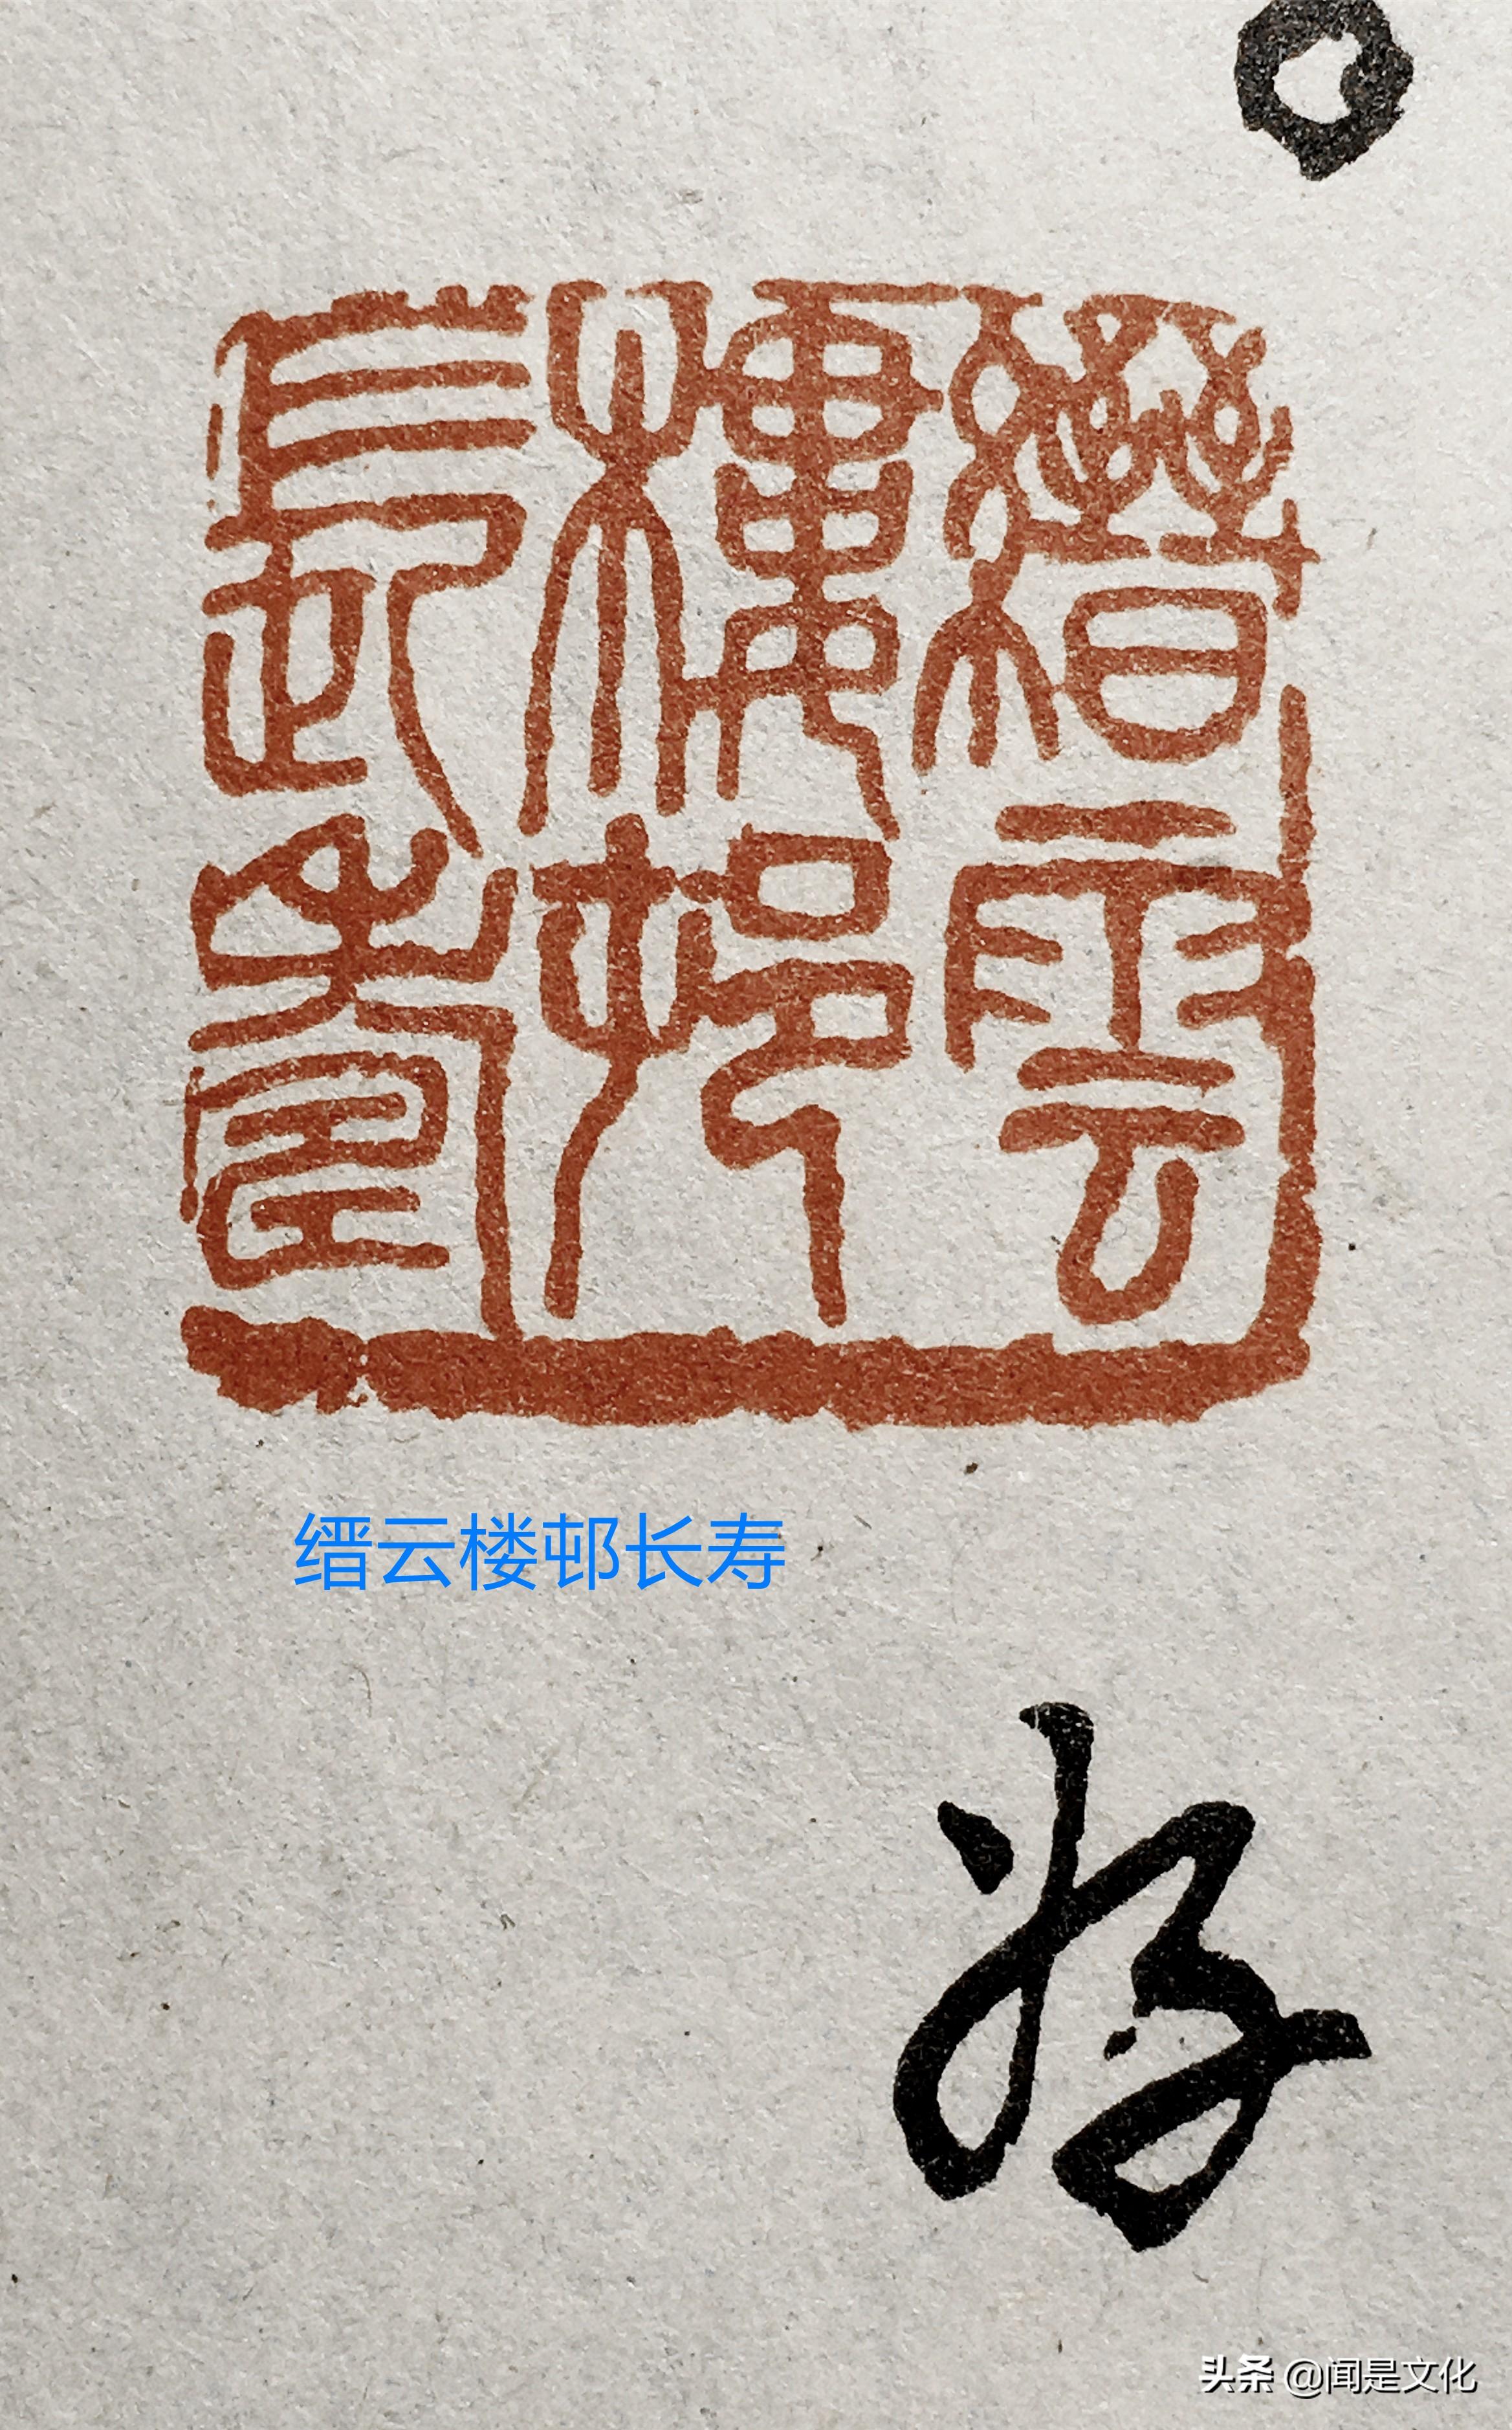 縉雲
樓邨
長壽
缙云楼邨长寿
头条 @闻是文化